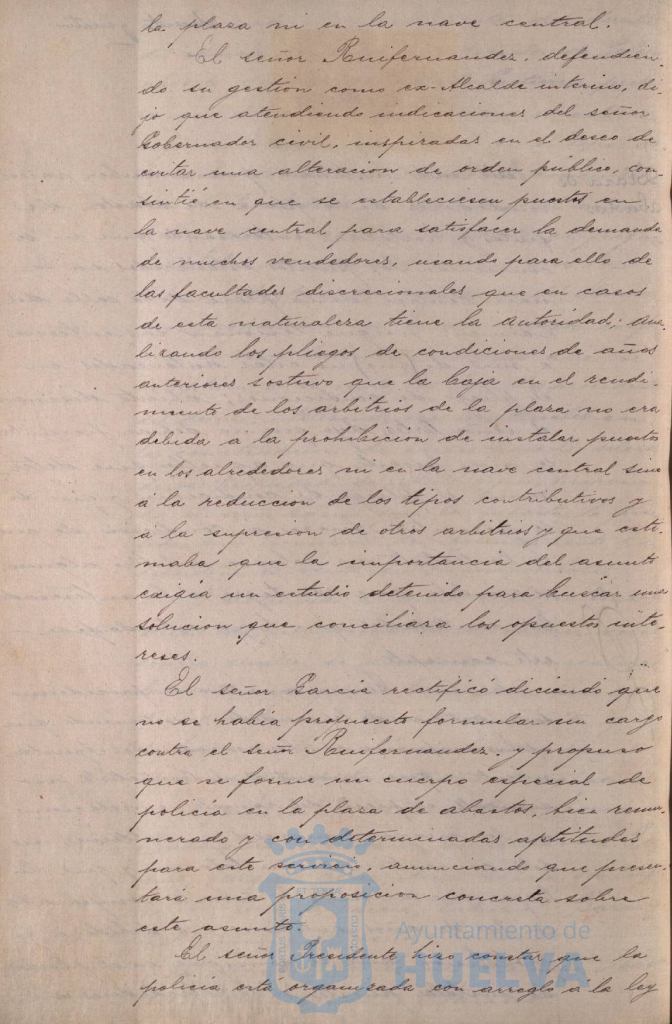 la plaza ni en la nave central.
El señor Ruifernandez, defendien-
do su gestión como ex-Alcalde interino, di-
jo que atendiendo indicaciones del señor
Gobernador civil, inspiradas en el deseo de
evitar una alteracion de orden público, con-
sintió en que se estableciesen puestos en
la nave central para satisfacer la demanda
de muchos vendedores, usando para ello de
las facultades discrecionales que en casos
de esta naturaleza tiene la autoridad; ana-
lizando los pliegos de condiciones de años
anteriores sostuvo que la baja en el rendi-
miento de los arbitrios de la plaza no era
debida á la prohibicion de instalar puestos
en los alrededores ni en la nave central sino
á la reduccion de los tipos contributivos y
á la supresion de otros arbitrios y que esti-
maba que la importancia del asunto
exigía un estudio detenido para buscar una
solucion que conciliara los opuestos inte-
reses.
El señor García rectificó diciendo que
no se había propuesto formular un cargo
contra el señor Ruifernandez, y propuso
que se forme un cuerpo especial de
policía en la plaza de abastos, bien remu-
nerado y con determinadas aptitudes
para este servicio, anunciando que presen-
tará una proposicion concreta sobre
este asunto.
El señor Presidente hizo constar que la
policía está organizada con arreglo á la ley
Ayuntamiento de
HUELVA